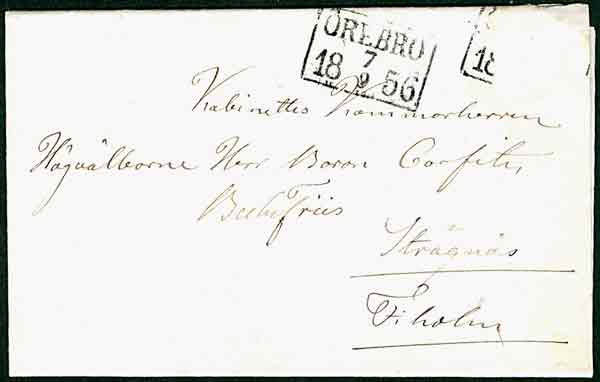 ÖREBRO
7
18 9 56
18
Kabinetts Kammarherren
Högvälborne Herr Baron Corfitz,
Beck Friis
Strägnäs
Fiholm